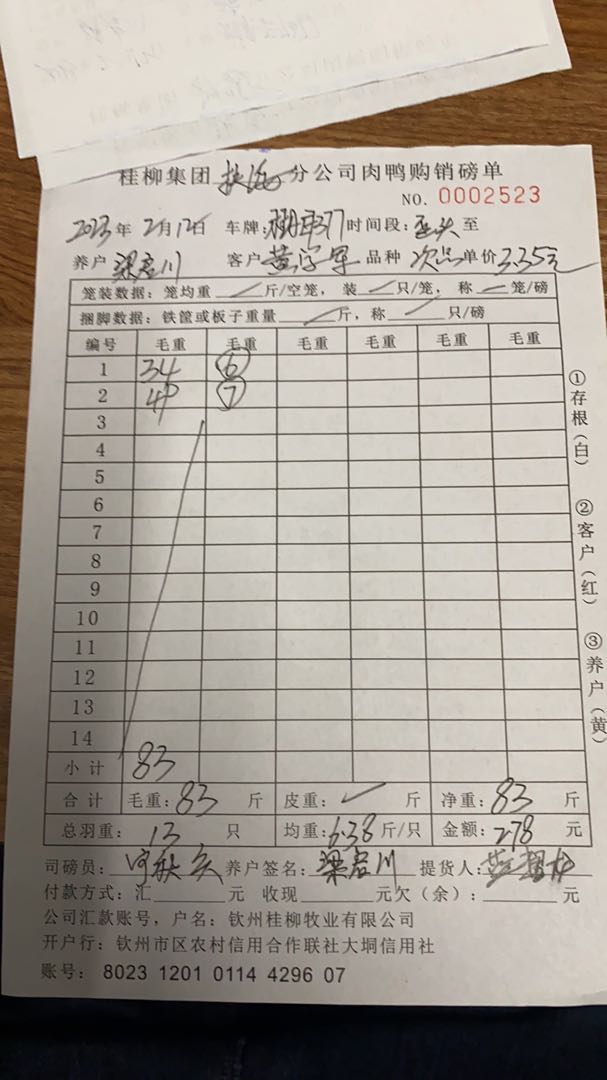 桂柳集团 分公司肉鸭购销磅单
NO. 0002523
2023年 2月12日 车牌: 377 时间段: 至
养户 梁启川 客户 黄 军 品种 次品 单价 3.35元
笼装数据: 笼均重 / 斤/空笼, 装 / 只/笼, 称 / 笼/磅
捆脚数据: 铁筐或板子重量 / 斤, 称 / 只/磅
编号 毛重 毛重 毛重 毛重 毛重 毛重
1 34 ⑥
2 49 ⑦
3
4
5
6
7
8
9
10
11
12
13
14
小计 83
合计 毛重: 83 斤 皮重: / 斤 净重: 83 斤
总羽重: 13 只 均重: 6.38 斤/只 金额: 278 元
司磅员: 养户签名: 梁启川 提货人:
付款方式: 汇 元 收现 元欠(余): 元
公司汇款账号, 户名: 钦州桂柳牧业有限公司
开户行: 钦州市区农村信用合作联社大垌信用社
账号: 8023 1201 0114 4296 07
①存根(白)
②客户(红)
③养户(黄)